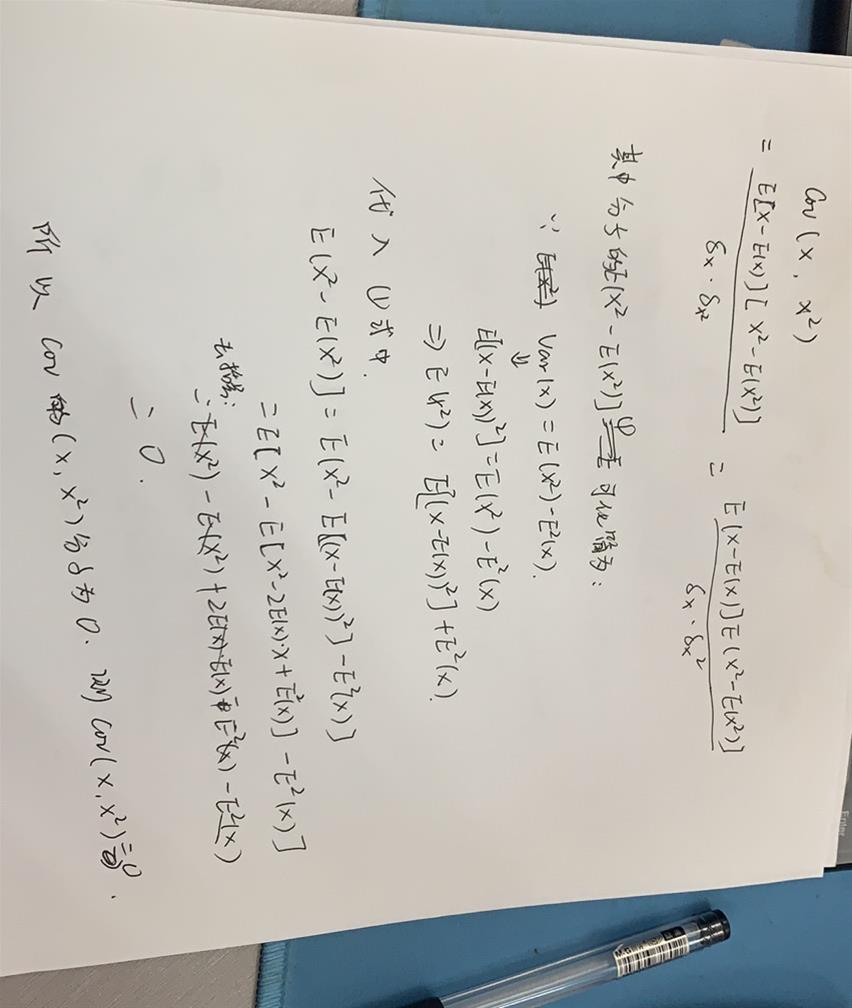 Cov(x, x²)
= E[x-E(x)][x²-E(x²)] / δx·δx² = E[x-E(x)]E(x²-E(x²)] / δx·δx²
其中分子的E[x²-E(x²)] ① 可化简为:
∵ Var(x)=E(x²)-E²(x).
↓
E[(x-E(x))²]=E(x²)-E²(x)
⇒ E(x²)= E[(x-E(x))²]+E²(x).
代入 ①式中.
E(x²-E(x²)]= E(x²-E[(x-E(x))²]-E²(x)]
=E[x²-E[x²-2E(x)·x+E²(x)]-E²(x)]
去括号:
= E(x²)-E(x²)+2E(x)·E(x)-E²(x)-E²(x)
= 0.
所以 Cov (x, x²)分子为0. 则 Cov(x, x²)=0.
Enter
M&G